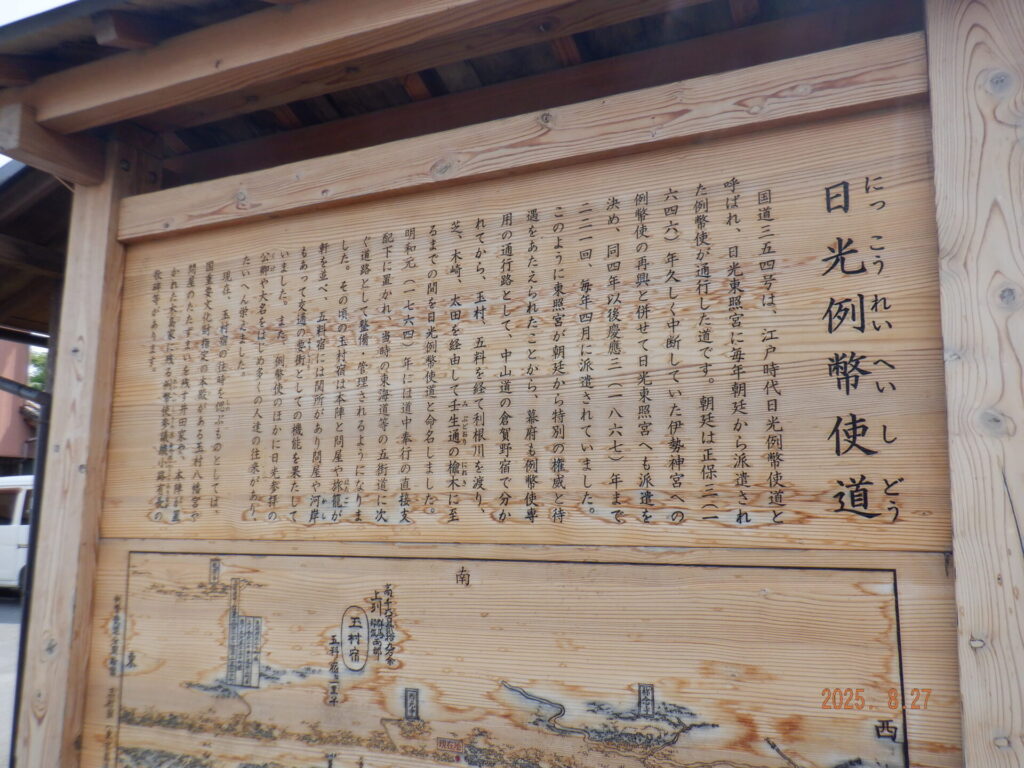 日光例幣使道
にっこうれいへいしどう
国道三五四号は、江戸時代日光例幣使道と
呼ばれ、日光東照宮に毎年朝廷から派遣され
た例幣使が通行した道です。朝廷は正保三(一
六四六)年久しく中断していた伊勢神宮への
例幣使の再興と併せて日光東照宮へも派遣を
決め、同四年以後慶應三(一八六七)年まで
二二一回、毎年四月に派遣されていました。
このように東照宮が朝廷から特別の権威と待
遇をあたえられたことから、幕府も例幣使専
用の通行路として、中山道の倉賀野宿で分か
れてから、玉村、五料を経て利根川を渡り、
芝、木崎、太田を経由して壬生通の楡木に至
るまでの間を日光例幣使道と命名しました。
明和元(一七六四)年には道中奉行の直接支
配下に置かれ、当時の東海道等の五街道に次
ぐ道路として整備・管理されるようになりま
した。その頃の玉村宿は本陣と問屋や旅籠が
軒を並べ、五料宿には関所があり問屋や河岸
もあって交通の要衝としての機能を果たして
いました。また、例幣使のほかに日光参拝の
公卿や大名をはじめ多くの人達の往来があり、
たいへん栄えました。
現在、玉村宿の往時を偲ぶものとしては、
国重要文化財指定の本殿がある玉村八幡宮や
問屋のたたずまいを残す井田家や、本陣が置
かれた木島家に残る例幣使参議綾小路有長の
歌碑等があります。
南
玉村宿
東
西
現在地
2025. 8.27